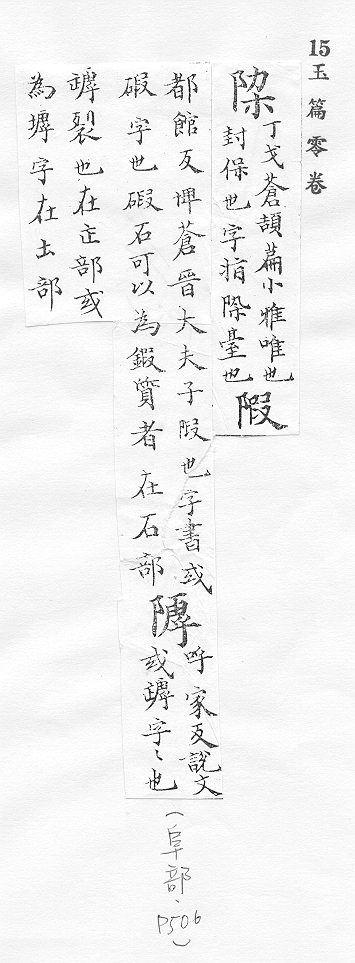 15 玉篇零卷
丁戈蒼頡萹小雅唯也
封保也字指也
都館反埤蒼晉大夫子也字書或
碫字也碫石可以為鍜質者在石部
呼家反說文
或罅字〻也
罅裂也在缶部或
為㙤字在土部
(阜部、P506)